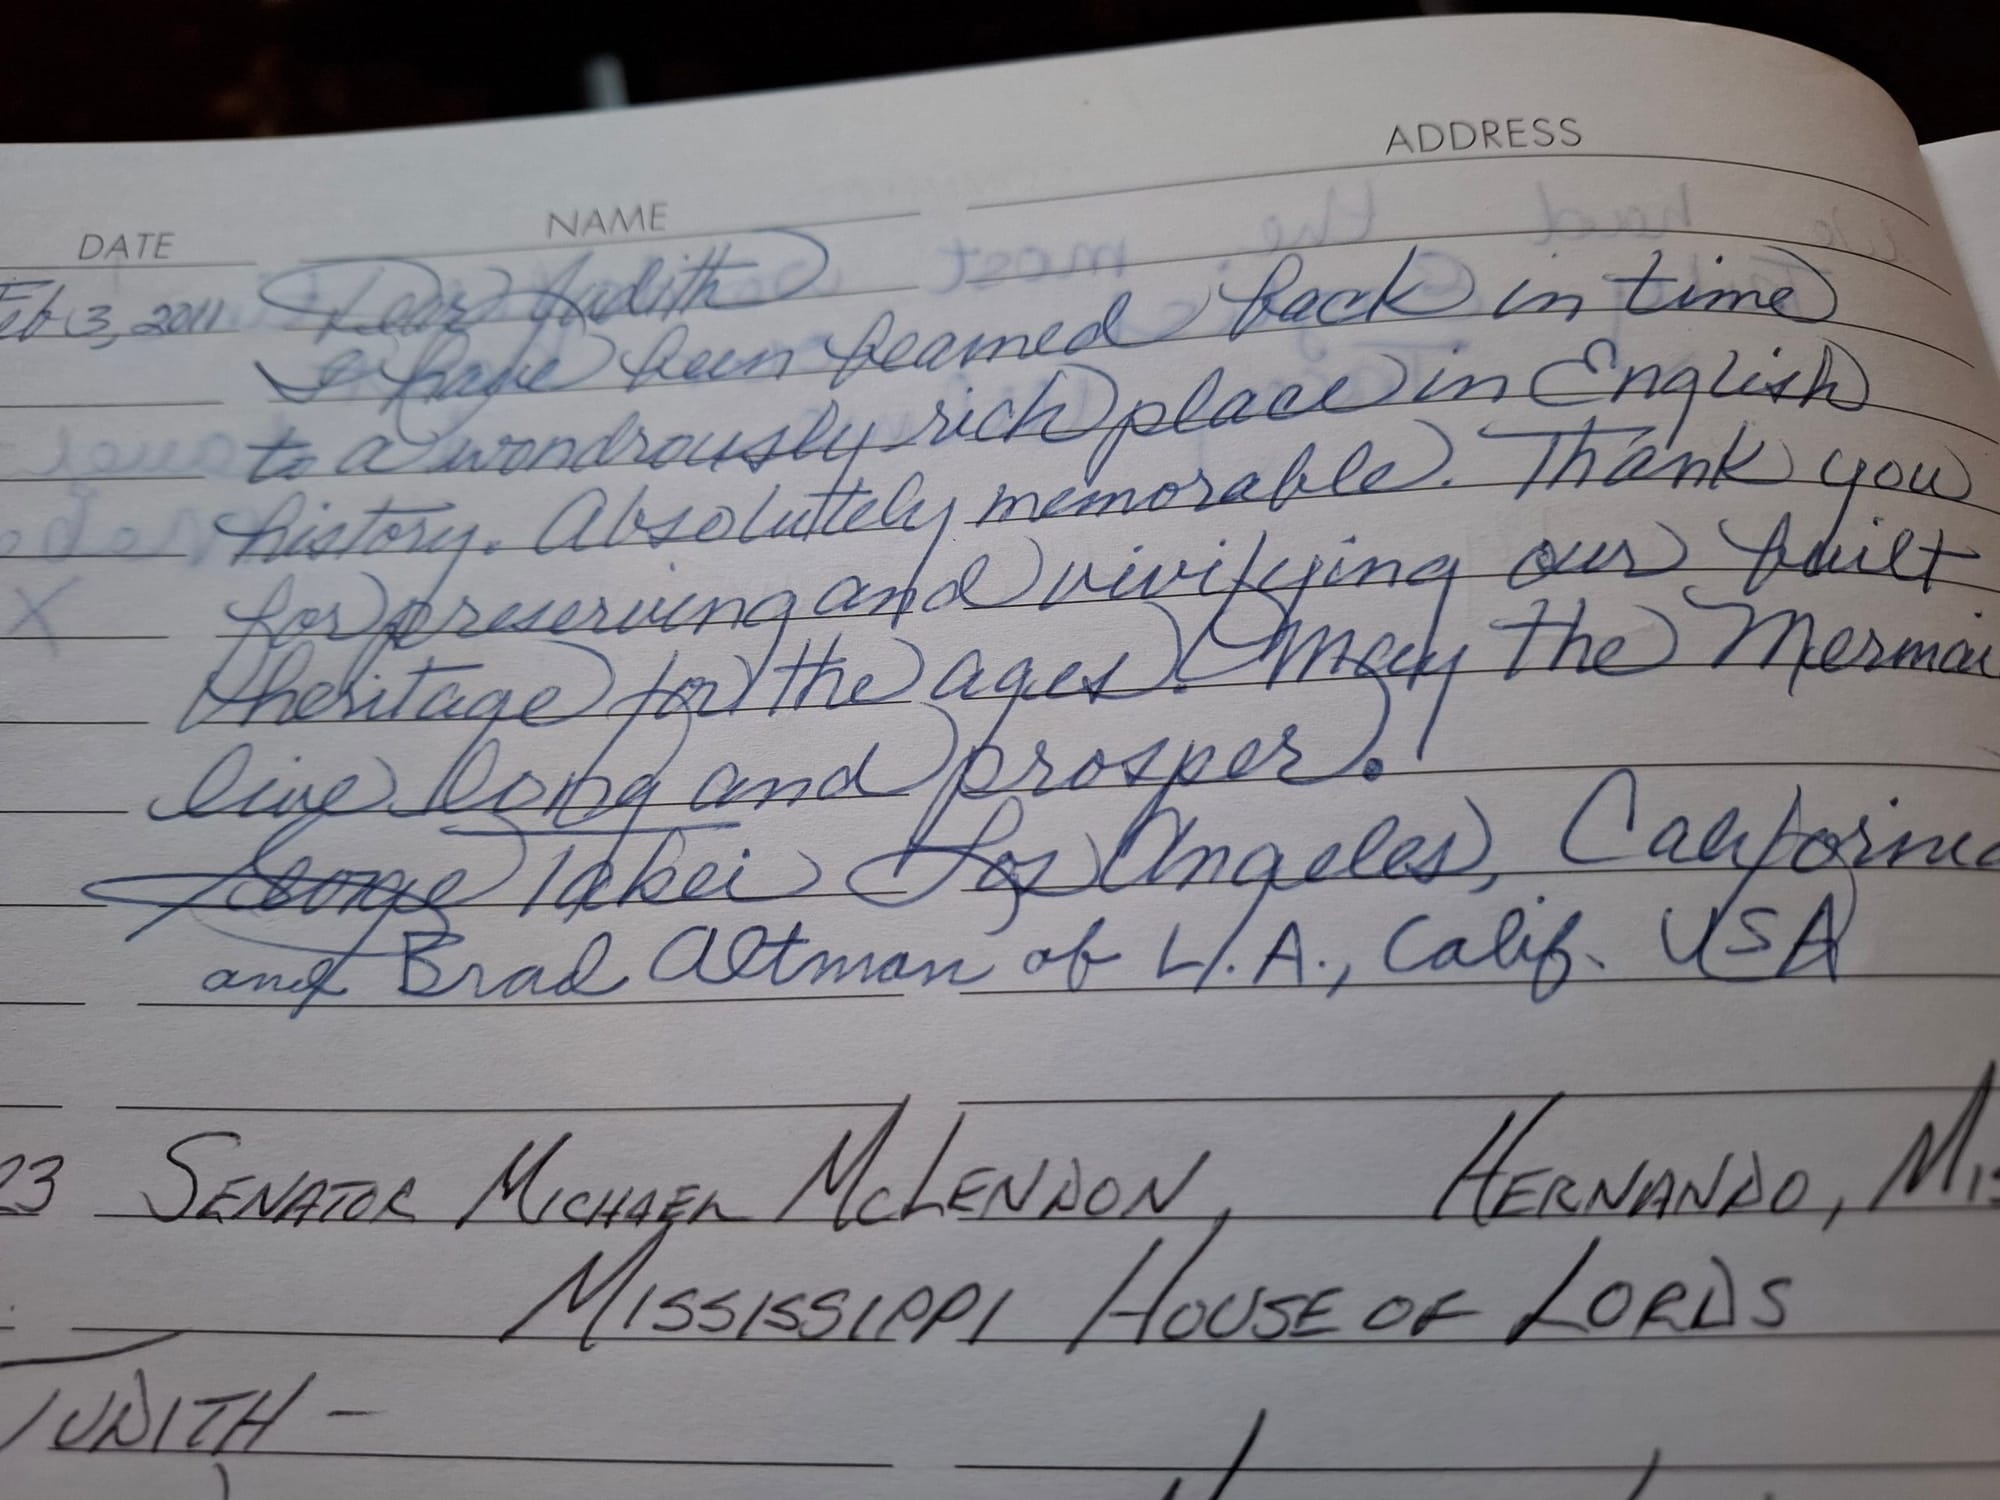 DATE NAME ADDRESS
Feb 3, 2011 Dear Judith
I have been beamed back in time
to a wondrously rich place in English
history. Absoluttely memorable. Thank you
for preserving and vivifying our built
heritage for the ages. May the Mermai
live long and prosper.
George Takei Los Angeles, California
and Brad Altman of L.A., Calif. USA
23 SENATOR MICHAEL MCLENDON, HERNANDO, MIS
MISSISSIPPI HOUSE OF LORDS
JUDITH -